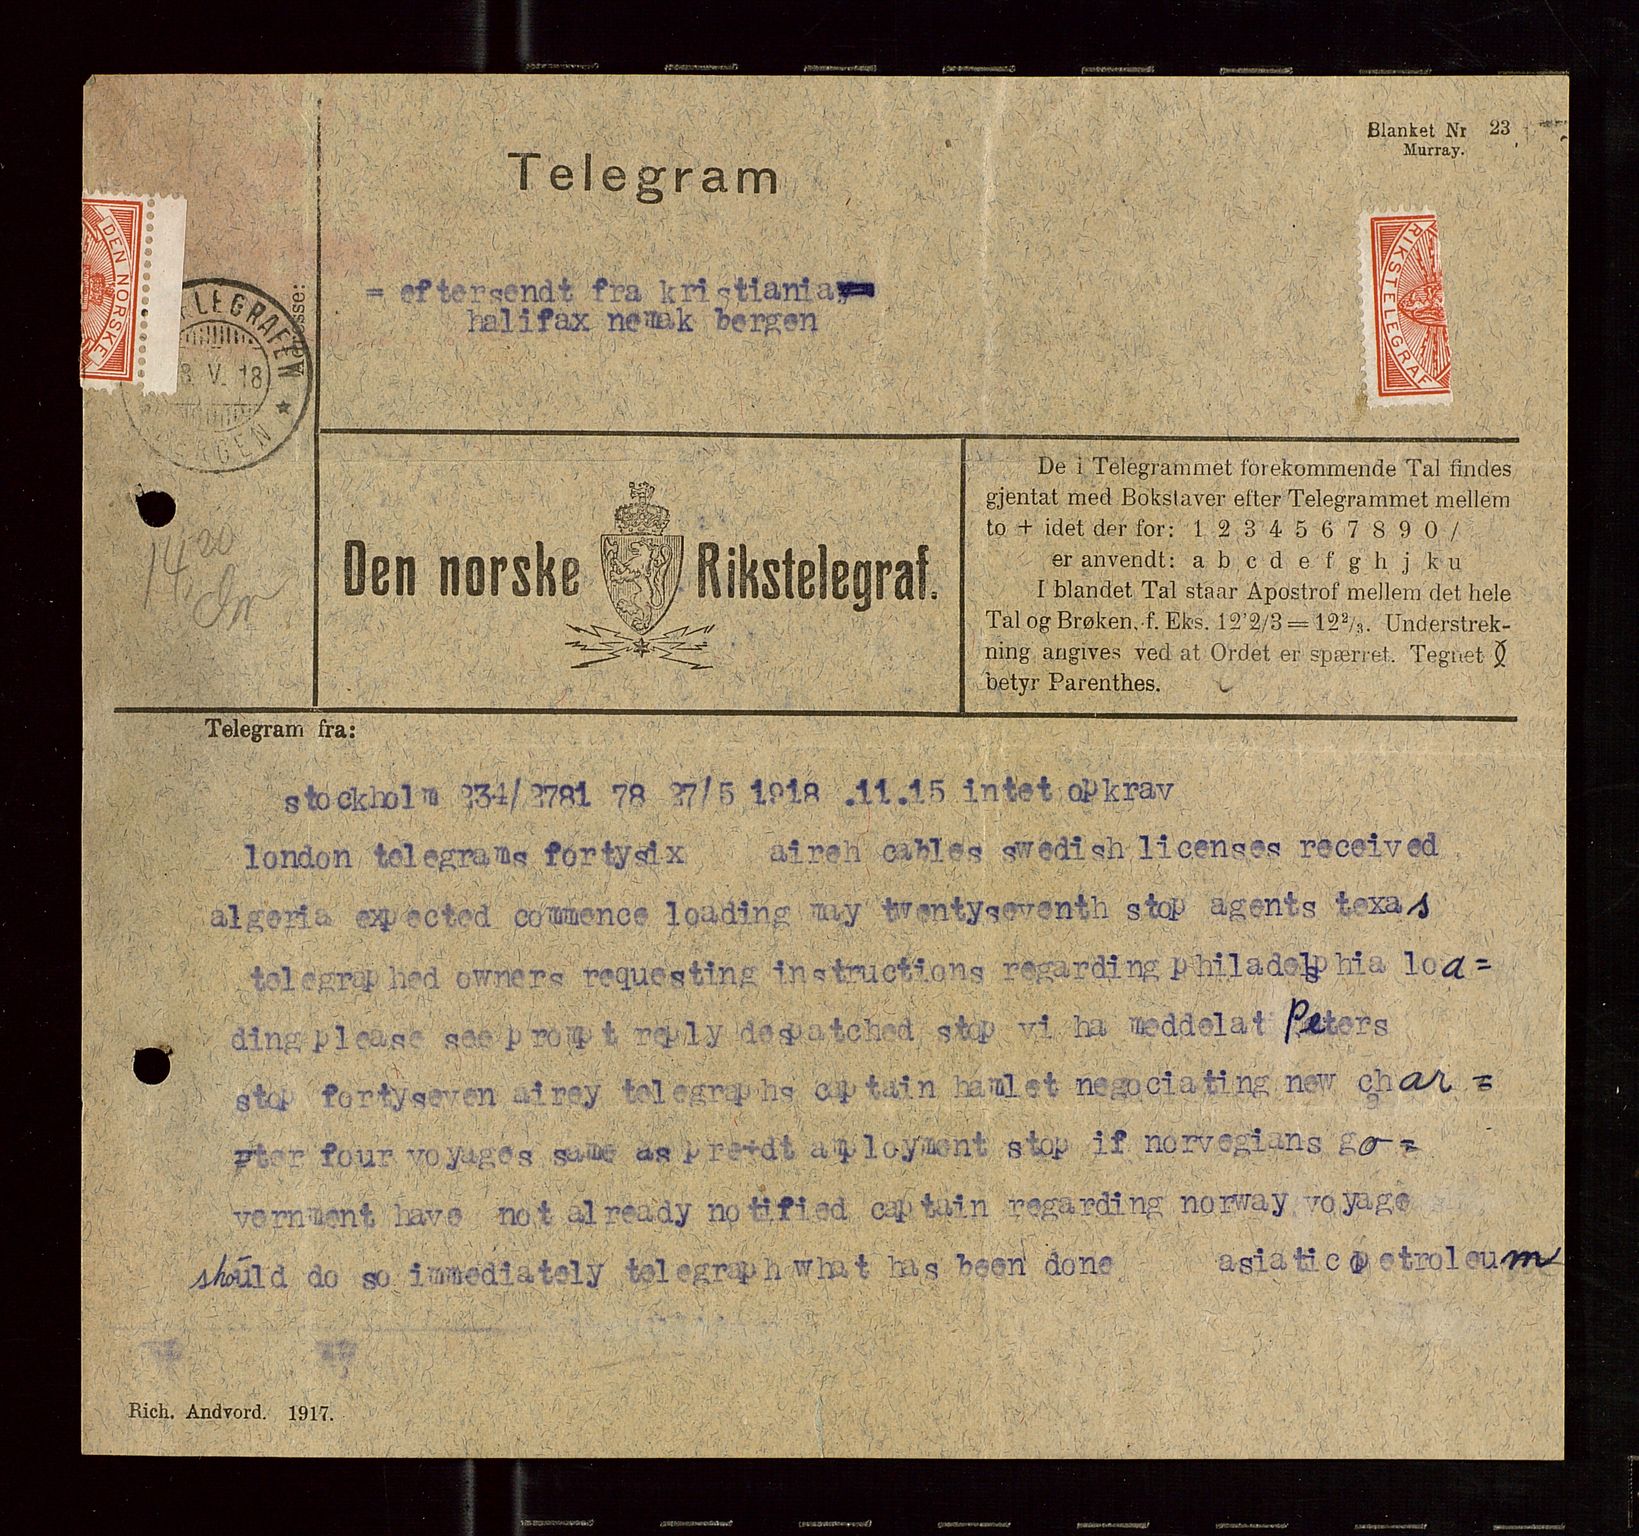 Blanket Nr 23
Murray.
Telegram
DEN NORSKE
RIKSTELEGRAF
= eftersendt fra kristiania,=
halifax nemak bergen
LEGRAFEN
8 V. 18
ERGEN
esse:
14 20
De i Telegrammet forekommende Tal findes
gjentat med Bokstaver efter Telegrammet mellem
to + idet der for: 1 2 3 4 5 6 7 8 9 0 /
er anvendt: a b c d e f g h j k u
I blandet Tal staar Apostrof mellem det hele
Tal og Brøken, f. Eks. 12'2/3 = 12²/₃. Understrek-
ning angives ved at Ordet er spærret. Tegnet
betyr Parenthes.
Den norske Rikstelegraf.
Telegram fra:
stockholm 234/2781 78 27/5 1918 .11.15 intet opkrav
london telegrams fortysix aireh cables swedish licenses received
algeria expected commence loading may twentyseventh stop agents texas
telegraphed owners requesting instructions regarding philadelphia loa=
ding please see prompt reply despatched stop vi ha meddelat Peters
stop fortyseven airey telegraphs captain hamlet negociating new char =
rter four voyages same as pretdt amployment stop if norvegians go=
vernment have not already notified captain regarding norway voyage
should do so immediately telegraph what has been done asiatic petroleum
Rich. Andvord. 1917.